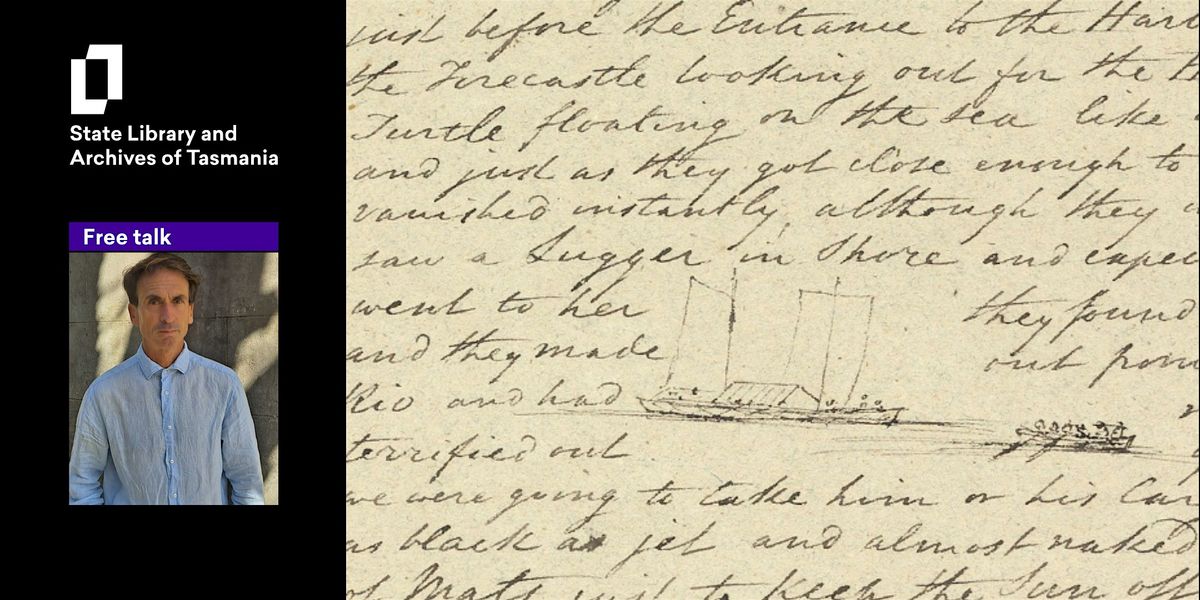 State Library and
Archives of Tasmania
Free talk
just before the Entrance to the
the Forecastle looking out for the
Turtle floating on the sea like
and just as they got close enough to
vanished instantly, although they
saw a Lugger in Shore and
went to her they found
and they made out
Rio and had
terrified out
we were going to take him or his
as black as jet and almost naked
of Mats just to keep the Sun off